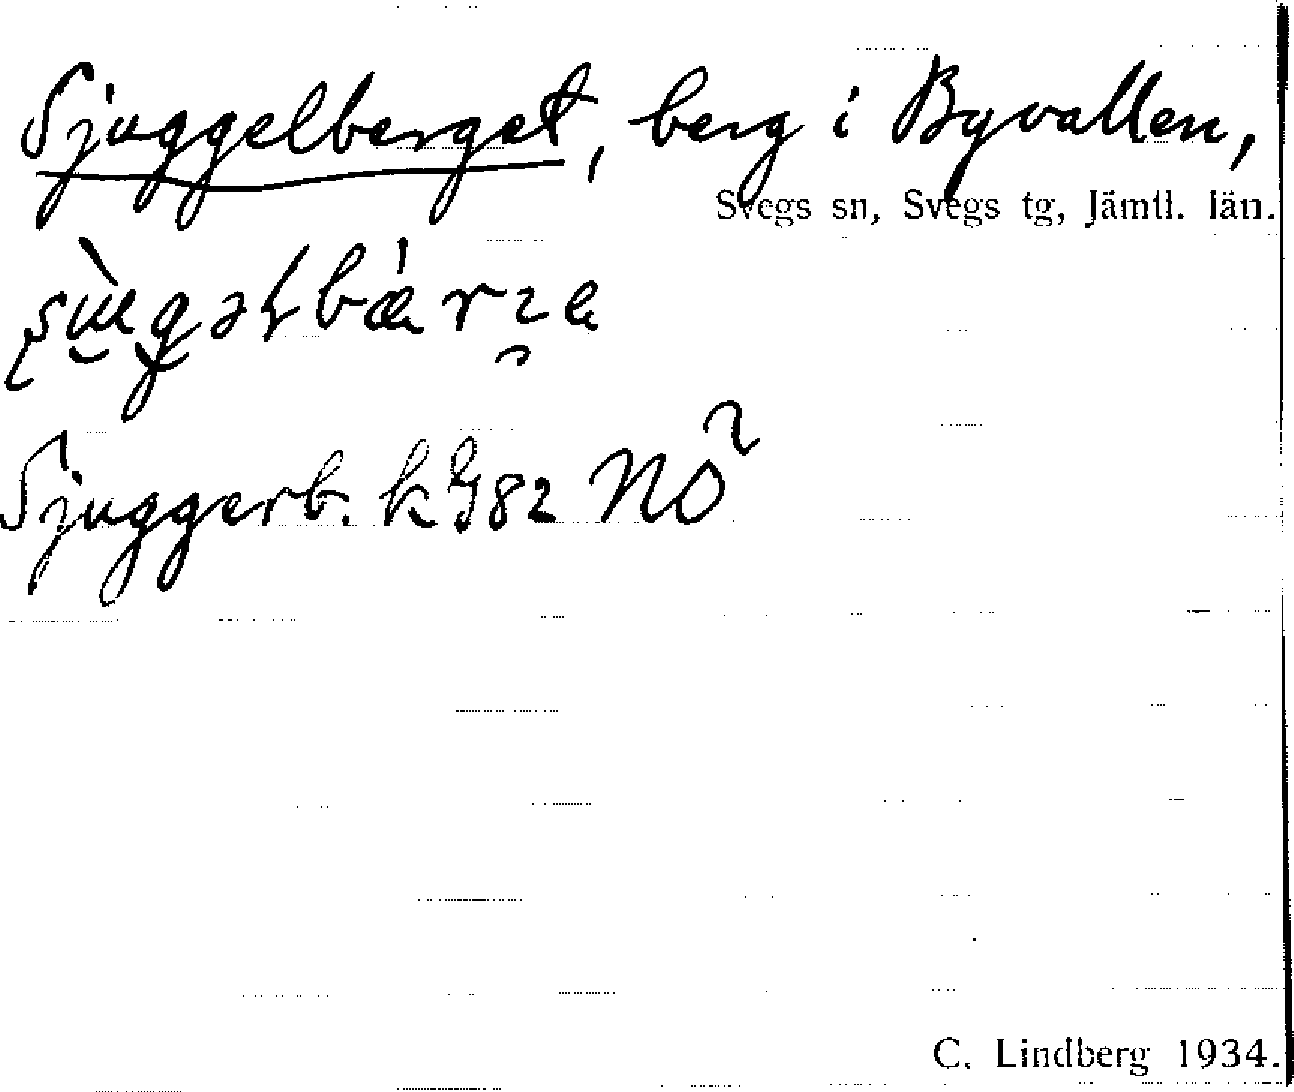 Sjuggelberget, berg i Byvallen,
Svegs sn, Svegs tg, Jämtl. län.
Sjuggerb. k G82 NO
C. Lindberg 1934.